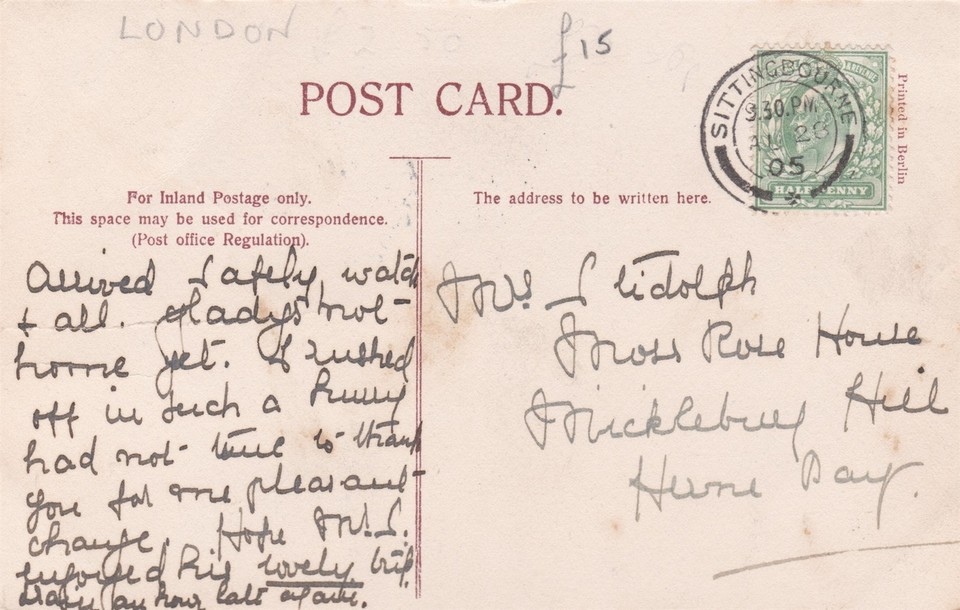 LONDON
£15
POST CARD.
SITTINGBOURNE
9.30.PM
AU 28
05
HALFPENNY
Printed in Berlin
For Inland Postage only.
This space may be used for correspondence.
(Post office Regulation).
The address to be written here.
Arrived safely watch
& all. Gladys not
home yet. I rushed
off in such a hurry
had not time to thank
you for me pleasant
change. Hope Mr. S.
enjoyed his lovely trip
train an hour late again.
Mrs Stidolph
Moss Rose House
Mickleburg Hill
Herne Bay.